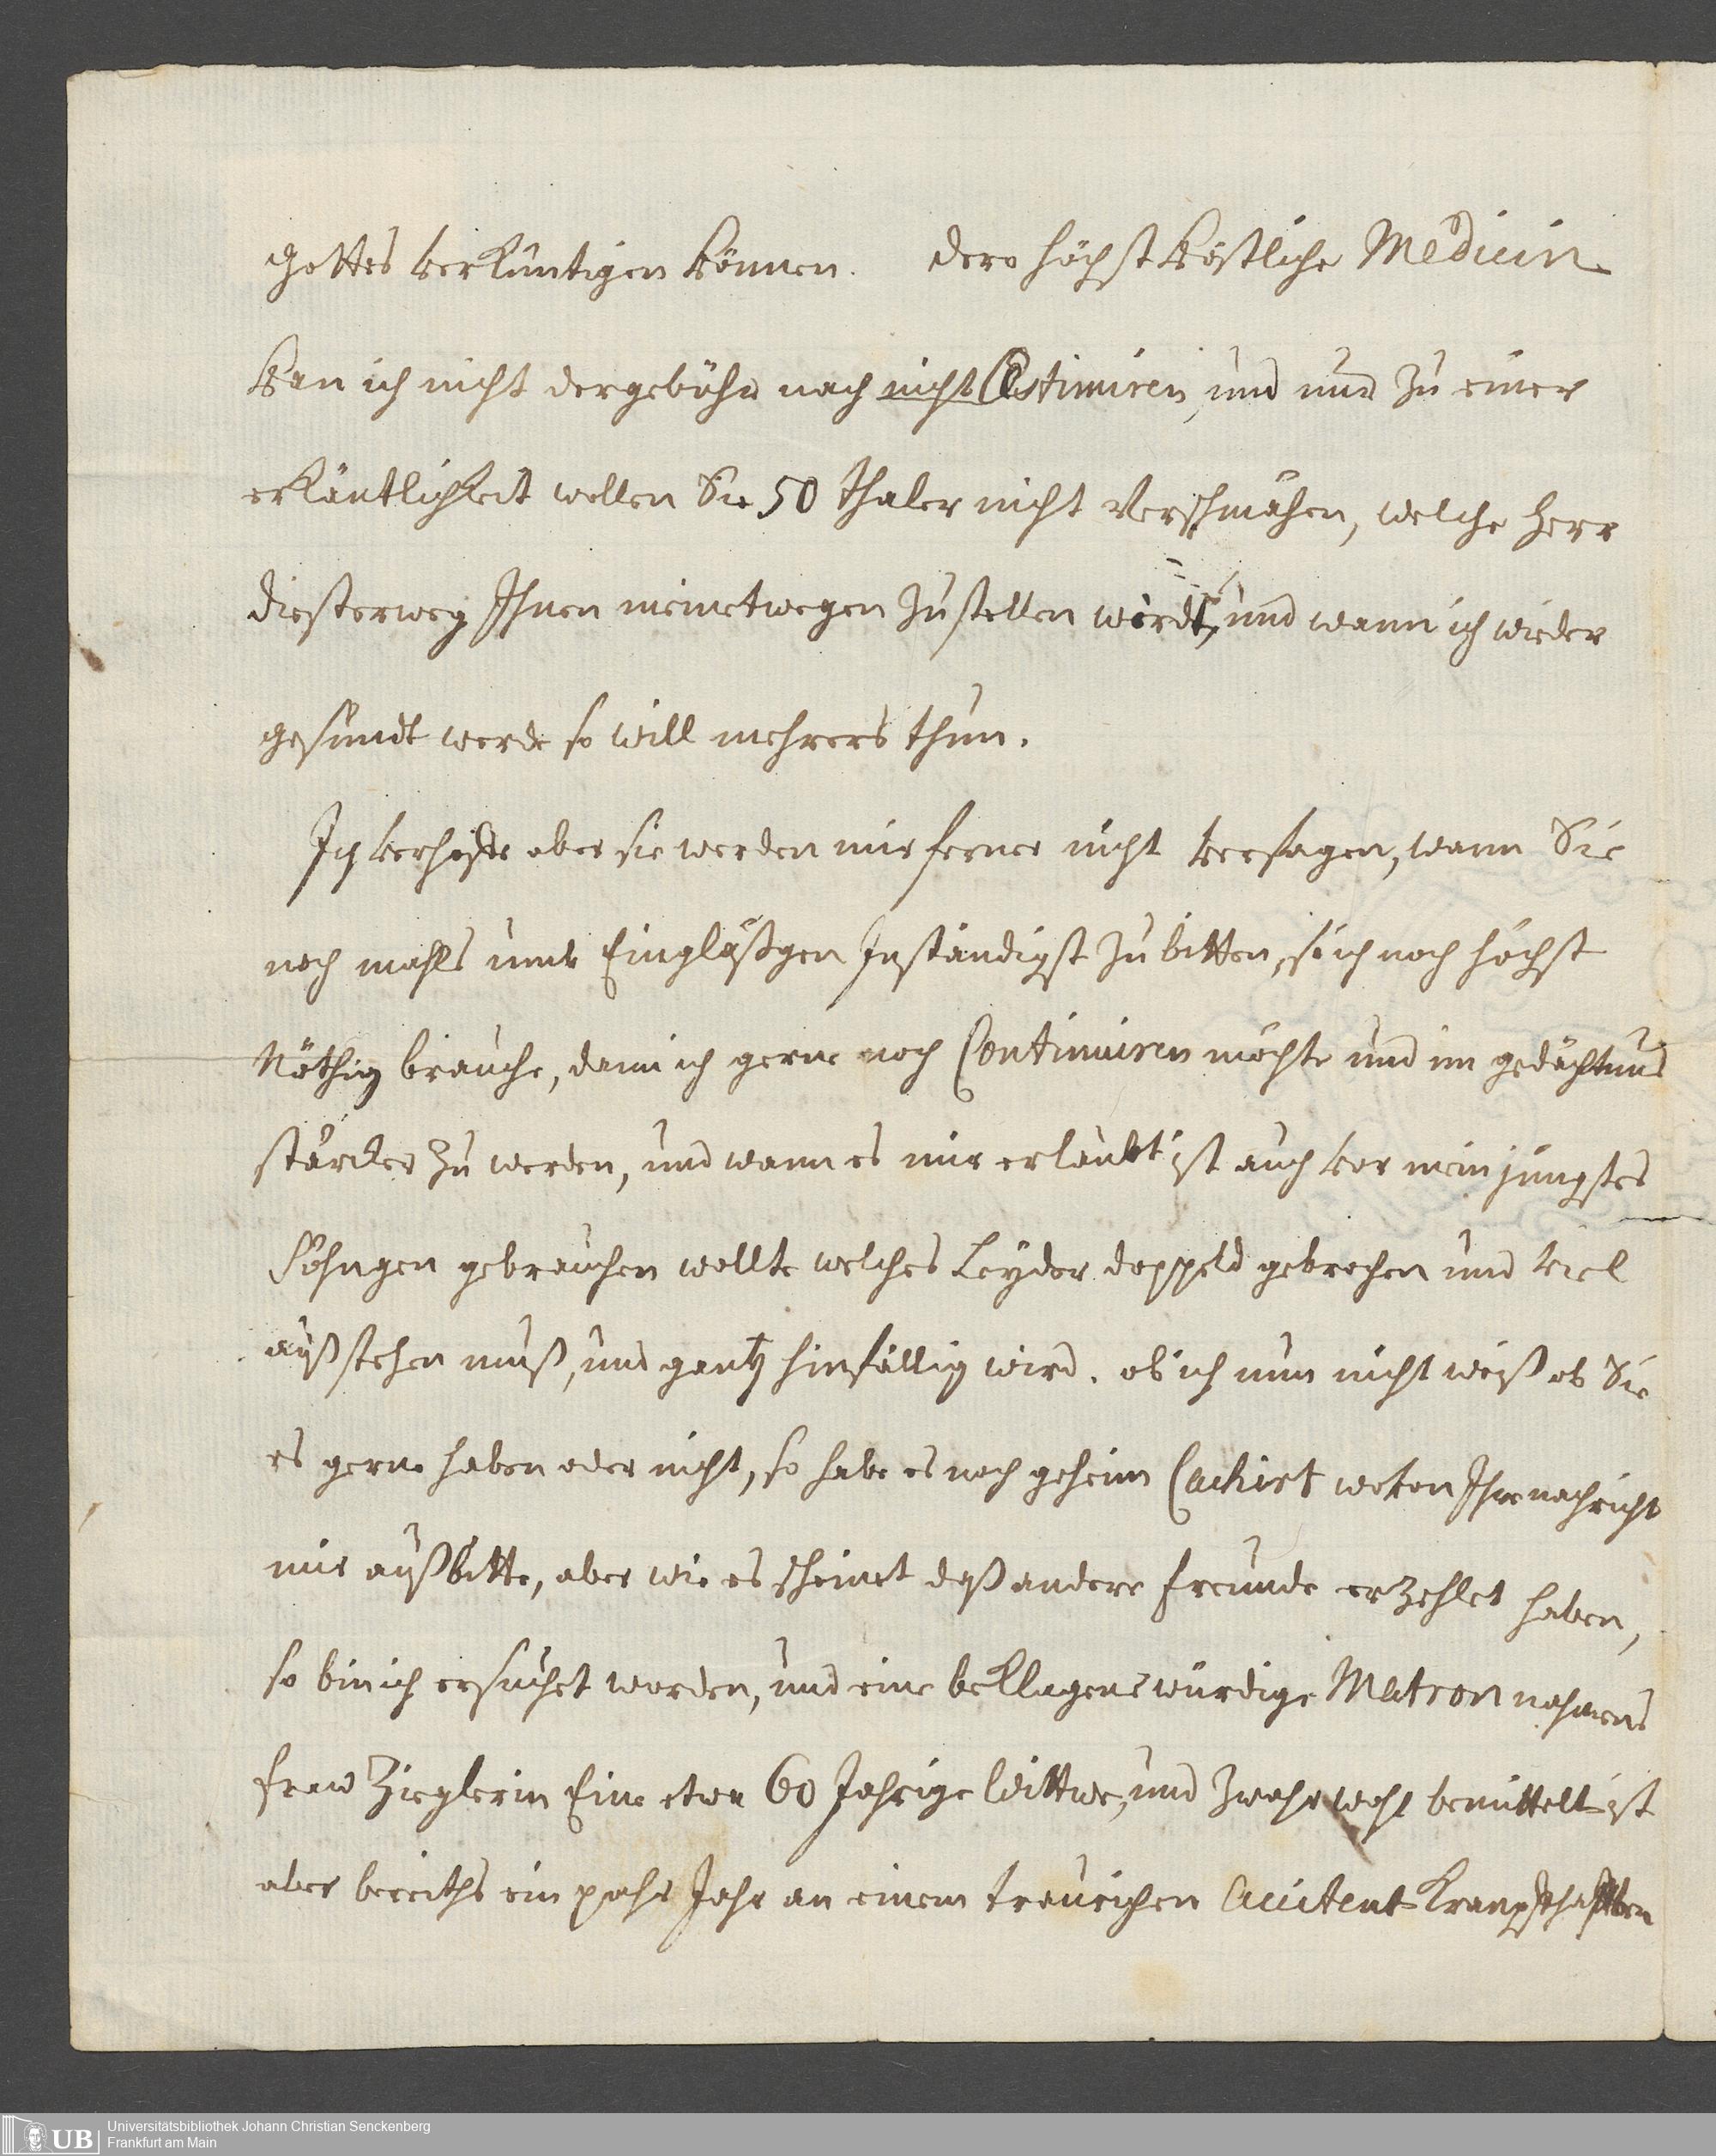 Gottes verkündigen können. Dero höchst köstliche Medicin
kan ich nicht der gebühr nach nicht Estimiren, und nur zu einer
erkäntlichkeit wollen Sie 50 Thaler nicht verschmähen, welche Herr
Diesterweg Ihnen meinetwegen zustellen wirdt, und wann ich wieder
gesundt werde so will mehrers thun.
Ich verhoffe aber sie werden mir ferner nicht versagen, wann Sie
noch mahls umb Eingläßgen Inständigst zu bitten, so ich noch höchst
Nöthig brauche, dann ich gerne noch Continuiren möchte und im gedächtnus
stärcker zu werden, und wann es mir erlaubt ist auch vor mein jungstes
Söhngen gebrauchen wollte welches Leyder doppeld gebrochen und viel
außstehen muß, und gantz hinfällig wird. ob ich nun nicht weiß ob Sie
es gerne haben oder nicht, so habe es noch geheim Cachirt wovon Ihre nachricht
mir außbitte, aber wie es scheinet daß andere Freunde erzehlet haben,
so bin ich ersuchet worden, und eine beklagenswürdige Matron nahmens
Fraw Zieglerin Eine etwa 60 Jahrige Wittwe, und zwahr wohl bemittelt ist
aber bereiths ein pahr Jahr an einem traurichen Accitent
Universitätsbibliothek Johann Christian Senckenberg
Frankfurt am Main
UB